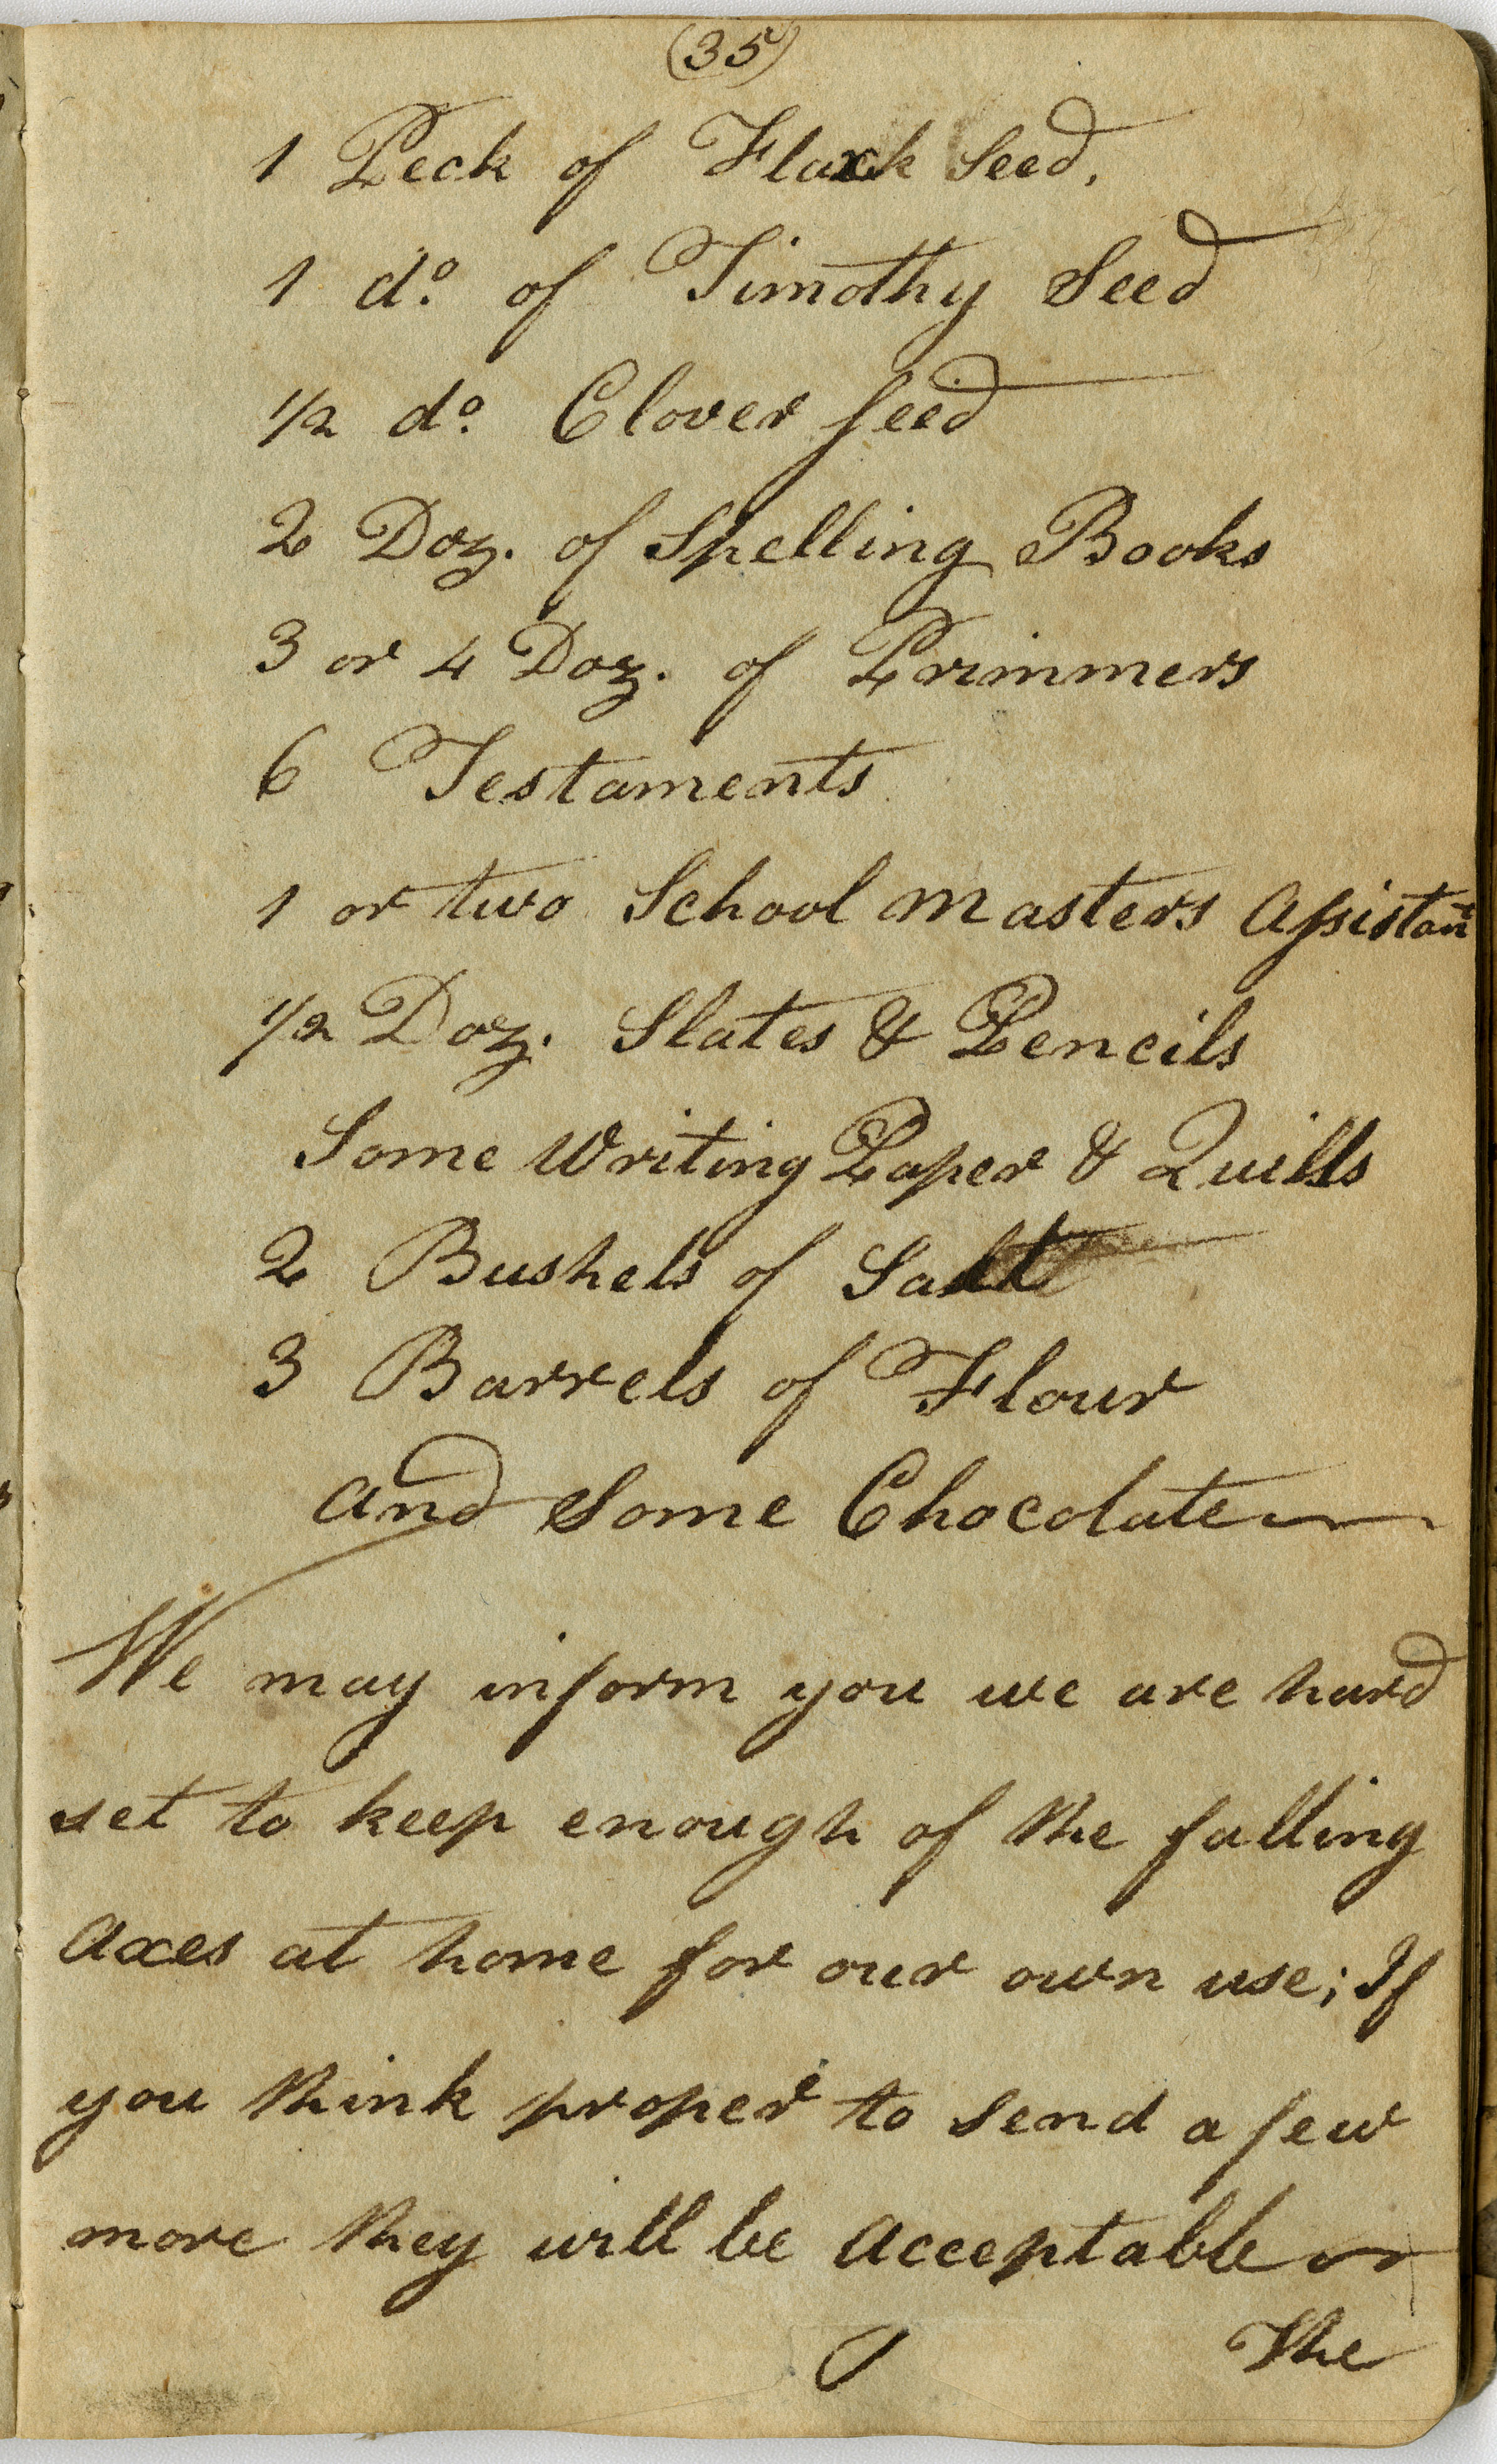 (35)
1 Peck of Flaxk Seed,
1 do. of Timothy Seed
1/2 do. Clover seed
2 Doz. of Spelling Books
3 or 4 Doz. of Primmers
6 Testaments
1 or two School Masters Assistant
1/2 Doz. Slates & Pencils
Some Writing Paper & Quills
2 Bushels of Salt
3 Barrels of Flour
and Some Chocolate
We may inform you we are hard
set to keep enough of the falling
Axes at home for our own use; If
you think proper to send a few
more they will be acceptable
The